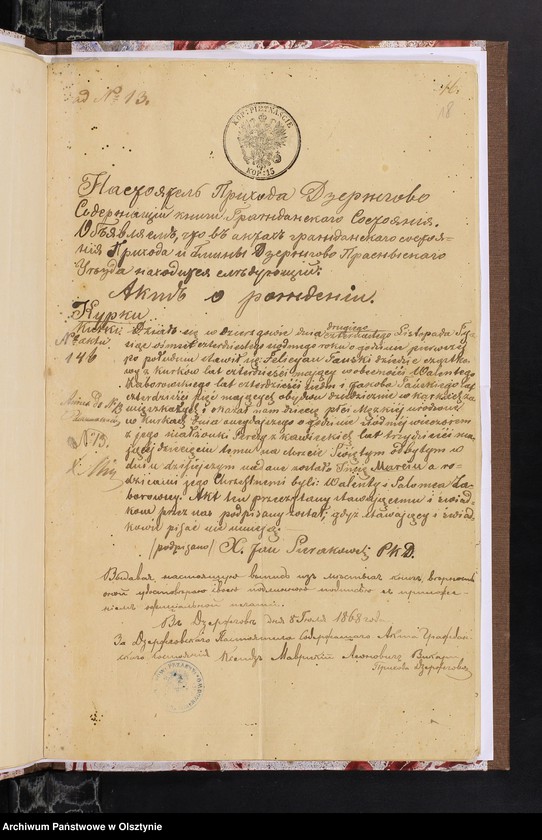 ad № 13.
18
KOP: PIETNAŚCIE
KOP: 15
Настоятель Прихода Дзержгово
Содержащій книги Гражданскаго Состоянія.
Объявляетъ, что въ актахъ гражданскаго состоя-
нія Прихода и Гмины Дзержгово Праснышскаго
Уѣзда находится слѣдующій:
Актъ о рожденіи.
Курки
Kurki
№ акта
146
Działo się w Dzierzgowie dnia drugiego Listopada Ty-
siąc ośmset czterdziestego roku o godzinie pierwszej
po południu stawił się Felicyan Tański dziedzic cząstko-
wy z Kurków lat czterdzieści mający w obecności Walentego
Zaborowskiego lat czterdzieści i Jakoba Tańskiego lat
czterdzieści pięć mających obydwu dziedziców w Kurkach za-
mieszkałych i okazał nam dziecię płci Męzkiej urodzone
w Kurkach dnia o godzinie siódmej wieczorem
z jego Małżonki lat trzydzieści ma-
jącej dziecięciu temu na Chrzcie Świętym odbytym w
dniu dzisiejszym nadane zostało Imię Marcin a ro-
dzicami jego Chrzestnemi byli: Walenty i Salomea Za-
borowscy. Akt ten przeczytany stawającemu i świad-
kom przez nas podpisany został, gdyż stawający i świad-
kowie pisać nie umieją.
№ 13.
/podpisano/ X. Jan P.K.D.
Выдавая настоящую выпись изъ мѣстныхъ книгъ, вѣрность
оной удостовѣряю своею подписью съ приложе-
ніемъ официальной печати.
Въ Дзержговѣ дня 8 Іюля 1868 года
За Дзержговскаго Настоятеля Содержащаго Акта Граждан-
скаго состоянія Ксендзъ Маврикій Викарій
Прихода Дзержгово
Archiwum Państwowe w Olsztynie